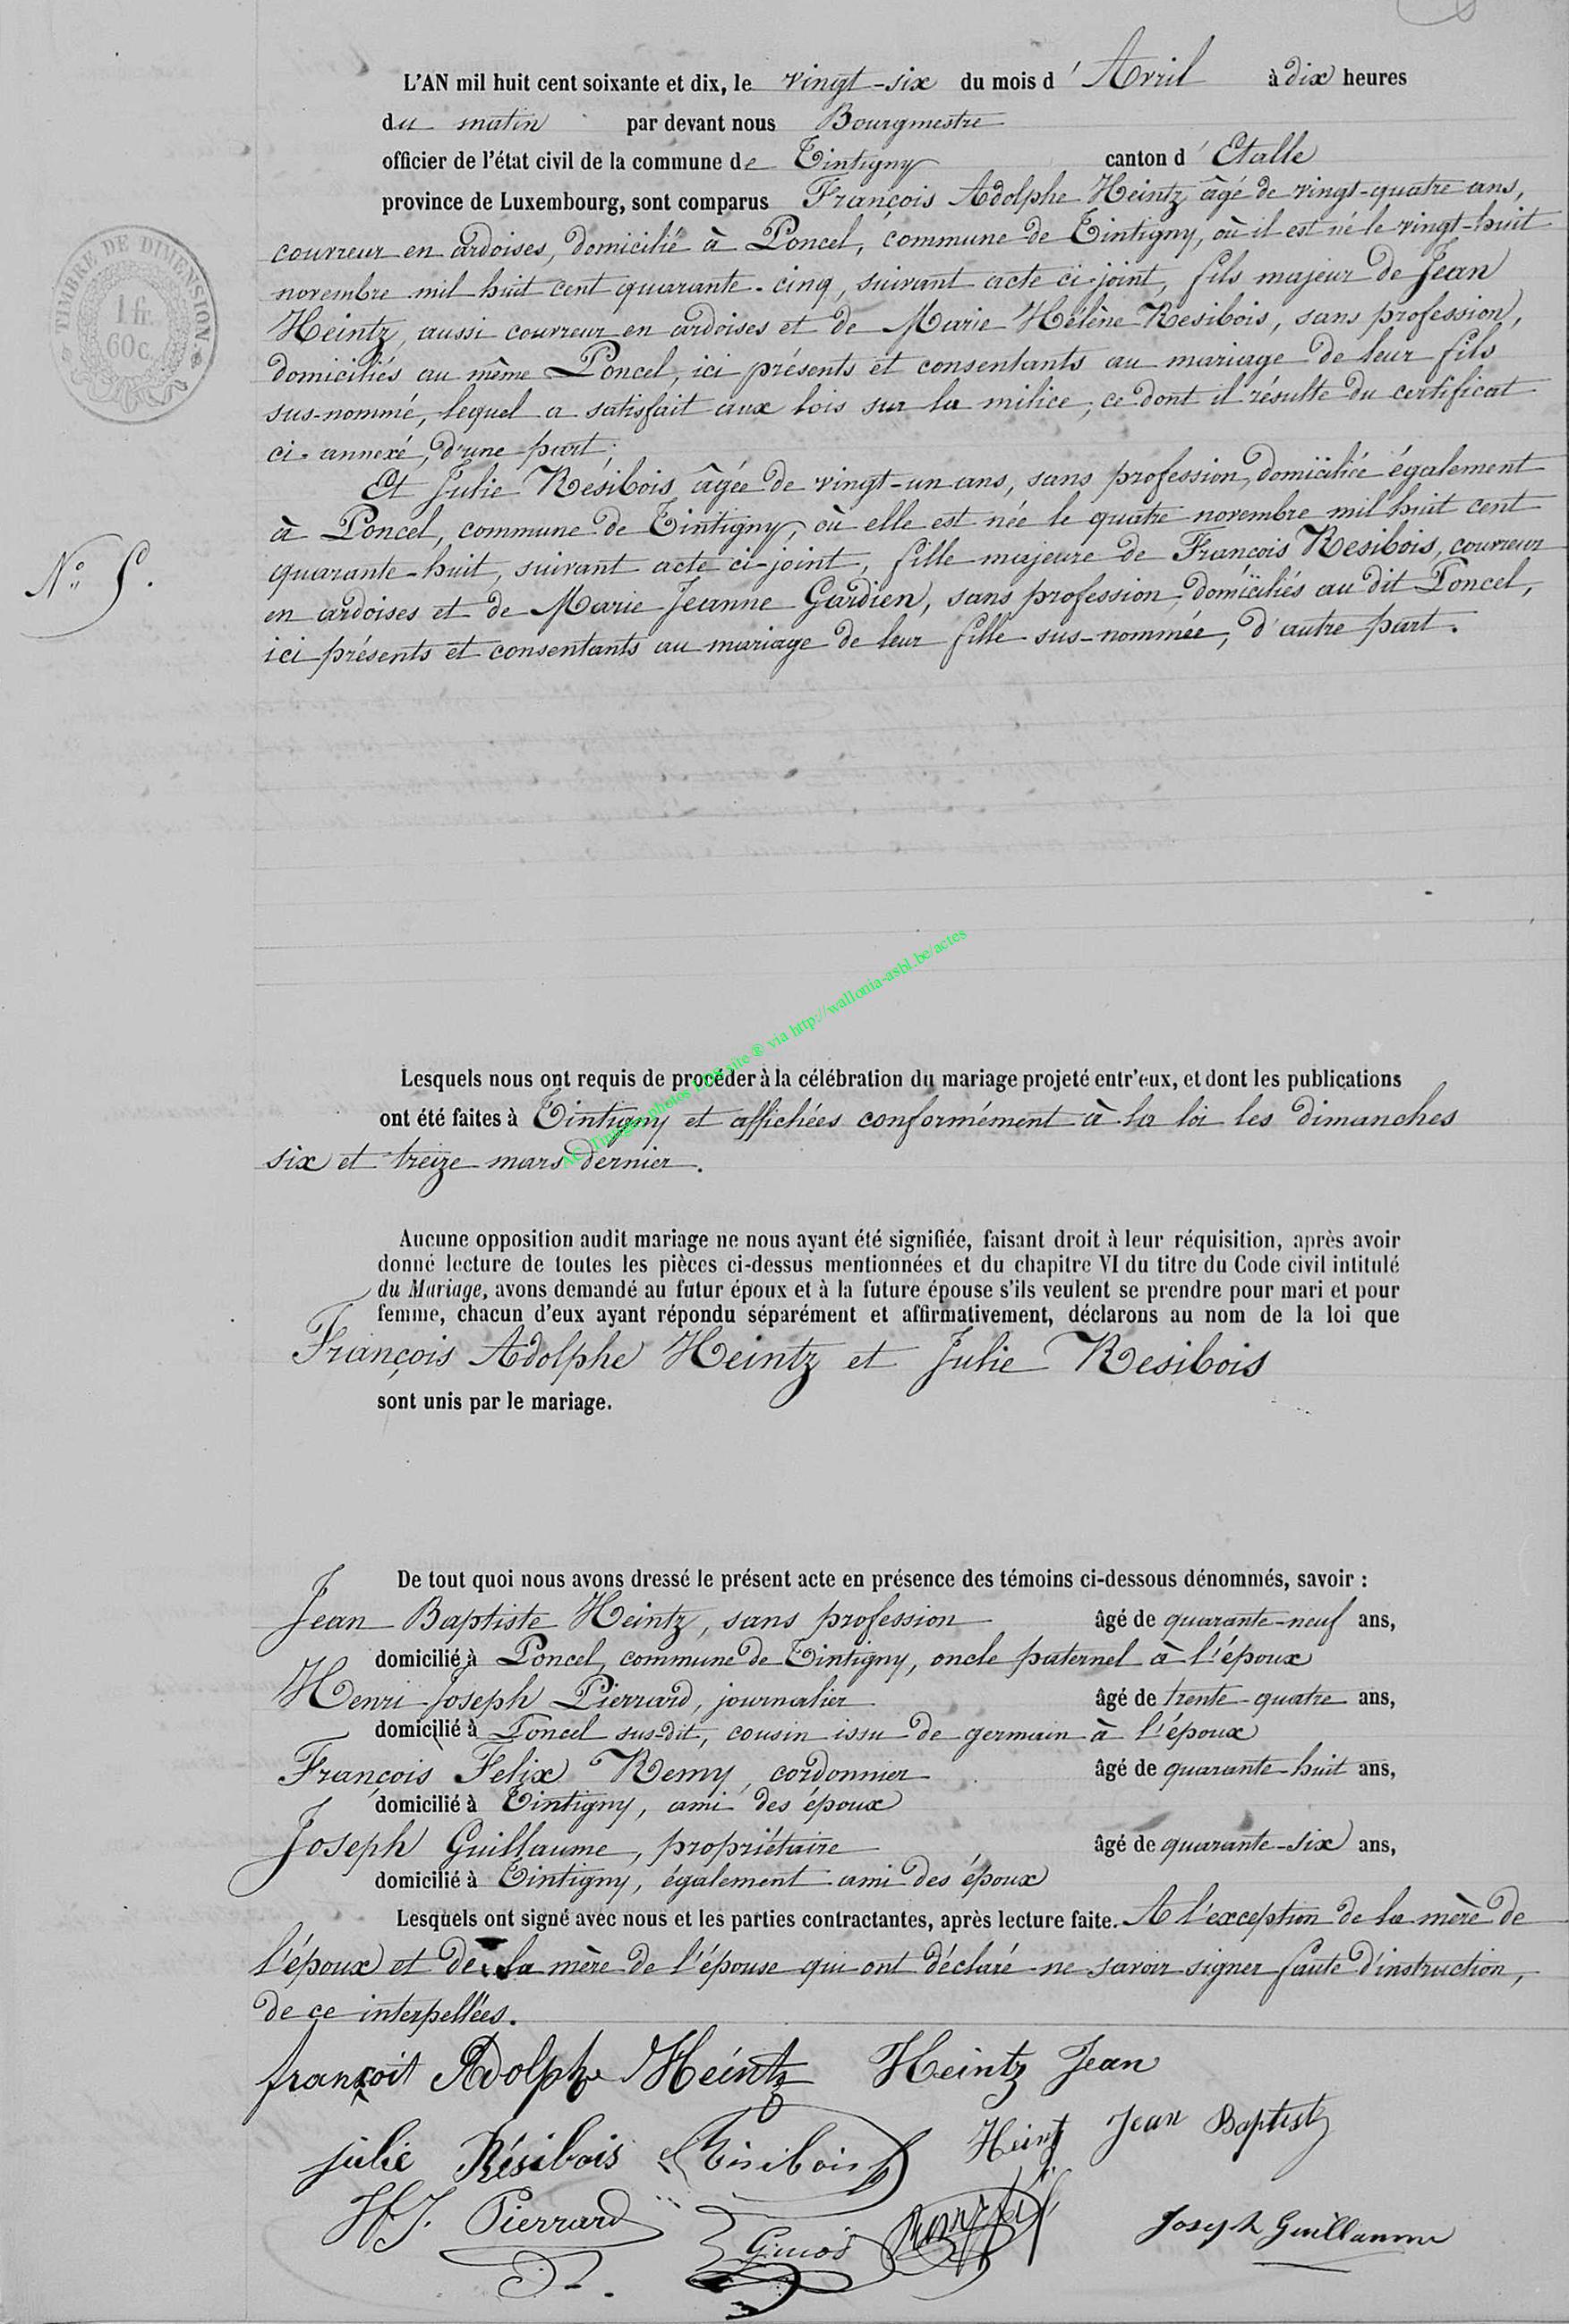 L'AN mil huit cent soixante et dix, le vingt-six du mois d'Avril à dix heures
du matin par devant nous Bourgmestre
officier de l'état civil de la commune de Tintigny canton d'Etalle
province de Luxembourg, sont comparus François Adolphe Heintz âgé de vingt-quatre ans,
couvreur en ardoises, domicilié à Poncel, commune de Tintigny, où il est né le vingt-huit
novembre mil huit cent quarante-cinq, suivant acte ci-joint, fils majeur de Jean
Heintz, aussi couvreur en ardoises et de Marie Hélène Resibois, sans profession,
domiciliés au même Poncel, ici présents et consentants au mariage de leur fils
sus-nommé, lequel a satisfait aux lois sur la milice, ce dont il résulte du certificat
ci-annexé, d'une part;
Et Julie Résibois âgée de vingt-un ans, sans profession, domiciliée également
à Poncel, commune de Tintigny, où elle est née le quatre novembre mil huit cent
quarante-huit, suivant acte ci-joint, fille majeure de François Resibois, couvreur
en ardoises et de Marie Jeanne Gardien, sans profession, domiciliés au dit Poncel,
ici présents et consentants au mariage de leur fille sus-nommée, d'autre part.
TIMBRE DE DIMENSION
1 fr.
60 c.
N° 5.
Lesquels nous ont requis de procéder à la célébration du mariage projeté entr'eux, et dont les publications
ont été faites à Tintigny et affichées conformément à la loi les dimanches
six et treize mars dernier.
site ® via http://wallonia-asbl.be/actes
Aucune opposition audit mariage ne nous ayant été signifiée, faisant droit à leur réquisition, après avoir
donné lecture de toutes les pièces ci-dessus mentionnées et du chapitre VI du titre du Code civil intitulé
du Mariage, avons demandé au futur époux et à la future épouse s'ils veulent se prendre pour mari et pour
femme, chacun d'eux ayant répondu séparément et affirmativement, déclarons au nom de la loi que
François Adolphe Heintz et Julie Resibois
sont unis par le mariage.
De tout quoi nous avons dressé le présent acte en présence des témoins ci-dessous dénommés, savoir :
Jean Baptiste Heintz, sans profession âgé de quarante-neuf ans,
domicilié à Poncel, commune de Tintigny, oncle paternel à l'époux
Henri Joseph Pierrard, journalier âgé de trente-quatre ans,
domicilié à Poncel sus-dit, cousin issu de germain à l'époux
François Felix Remy, cordonnier âgé de quarante-huit ans,
domicilié à Tintigny, ami des époux
Joseph Guillaume, propriétaire âgé de quarante-six ans,
domicilié à Tintigny, également ami des époux
Lesquels ont signé avec nous et les parties contractantes, après lecture faite. A l'exception de la mère de
l'époux et de la mère de l'épouse qui ont déclaré ne savoir signer faute d'instruction,
de ce interpellées.
françoit Adolphe Heintz Heintz Jean
julie Résibois Résibois Heintz Jean Baptist
H J. Pierrard Joseph Guillaume